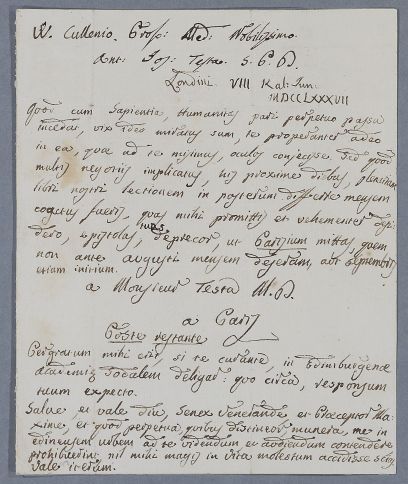 W. Cullenio. Prof: Med: Nobilissimo.
Ant: Jos: Testa. S. P. D.
Londini. VIII Kal: Jun:
MDCCLXXXVII
Quod cum Sapientia, Humanitas pari perpetuo passu
incedat, vix ideo miratus sum, te properanter adeo
in ea, quae ad te misimus, oculos conjecisse. Sed quod
multis negotiis implicatus, his proximis diebus, pleniorem
libri nostri lectionem in posterum differre mensem
coactus fueris, quas mihi promittis et vehementer desi
dero, epistolas, deprecor, ut Parisium mittas, quem
non ante augusti mensem deseram, aut septembris
etiam initium.
a Monsieur Testa M. D.
a Paris
Poste restante
Pergratum mihi erit, si te curante, in Edimburgenae
Academiae Socialem deligar. quo circa, responsum
tuum expecto.
Salve, et vale diu, Senex Venerande et Praeceptor Ma-
xime, et quod perpetua quibus distineor munera, me in
edinensem urbem ad te videndum et audiendum contendere
prohibuerint, nil mihi magis in vita molestum accidisse scias
Vale iterum.